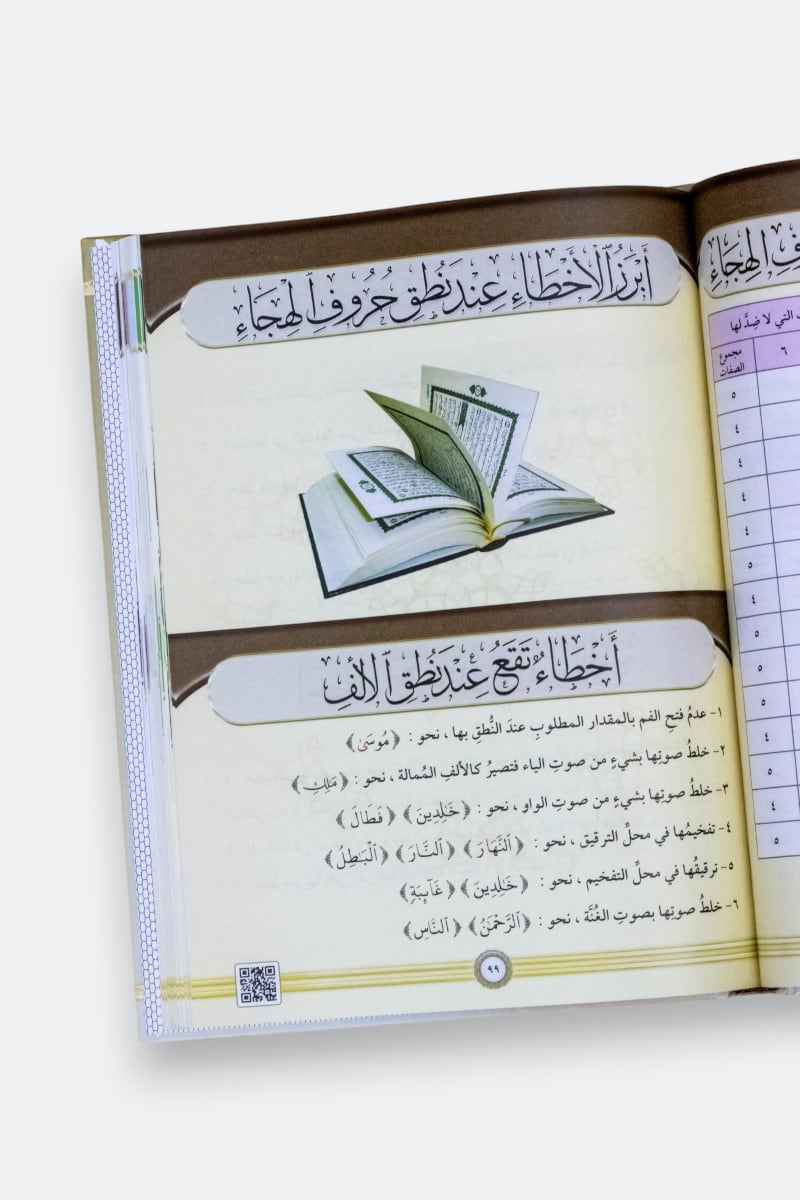 أَبْرَزُ ٱلْأَخْطَاءِ عِنْدَ نُطْقِ حُرُوفِ ٱلْهِجَاءِ
أَخْطَاءٌ تَقَعُ عِنْدَ نُطْقِ ٱلْأَلِفِ
١- عدمُ فتحِ الفمِ بالمقدار المطلوبِ عندَ النُّطقِ بها ، نحو : ﴿مُوسَىٰ﴾
٢- خلطُ صوتِها بشيءٍ من صوتِ الياء فتصيرُ كالألفِ المُمالة ، نحو : ﴿مَٰلِكِ﴾
٣- خلطُ صوتِها بشيءٍ من صوتِ الواو ، نحو : ﴿خَٰلِدِينَ﴾ ﴿فَطَالَ﴾
٤- تفخيمُها في محلِّ الترقيق ، نحو : ﴿ٱلنَّهَارَ﴾ ﴿ٱلنَّارَ﴾ ﴿ٱلْبَٰطِلُ﴾
٥- ترقيقُها في محلِّ التفخيم ، نحو : ﴿خَٰلِدِينَ﴾ ﴿غَآئِبَةٍ﴾
٦- خلطُ صوتِها بصوتِ الغُنَّة ، نحو : ﴿ٱلرَّحْمَٰنُ﴾ ﴿ٱلنَّاسِ﴾
٩٩
الْهِجَاءِ
التي لا ضِدَّ لها
٦
مجموع
الصفات
٥
٤
٤
٤
٤
٥
٤
٥
٥
٥
٤
٥
٤
٥